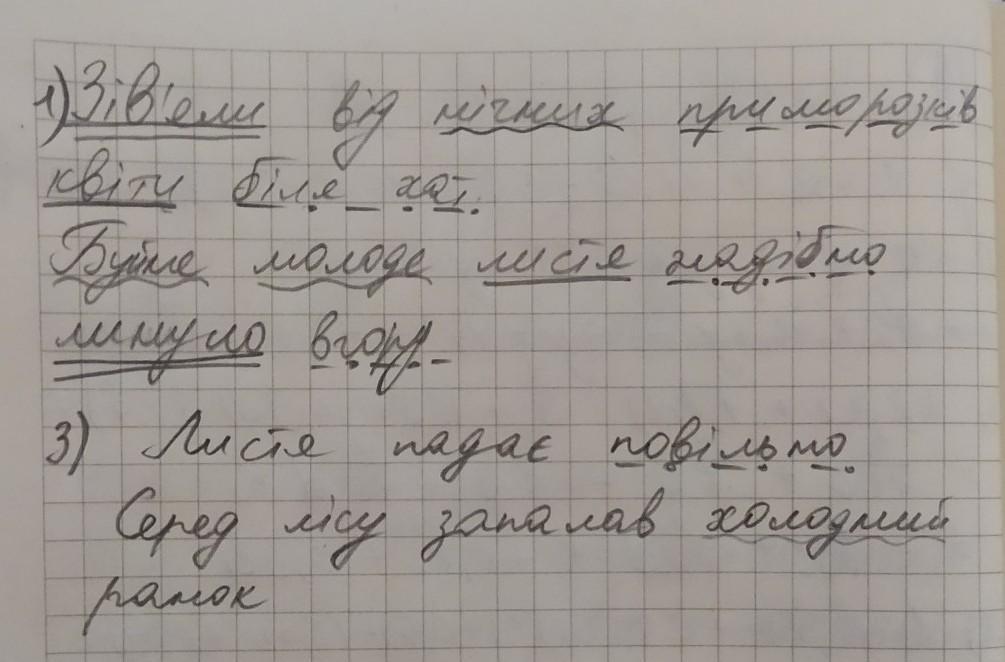 1) Зів'яли від нічних приморозків
квіти біля хат.
Буйне молоде листя жадібно
линуло вгору
3) Листя падає повільно.
Серед лісу запалав холодний
ранок